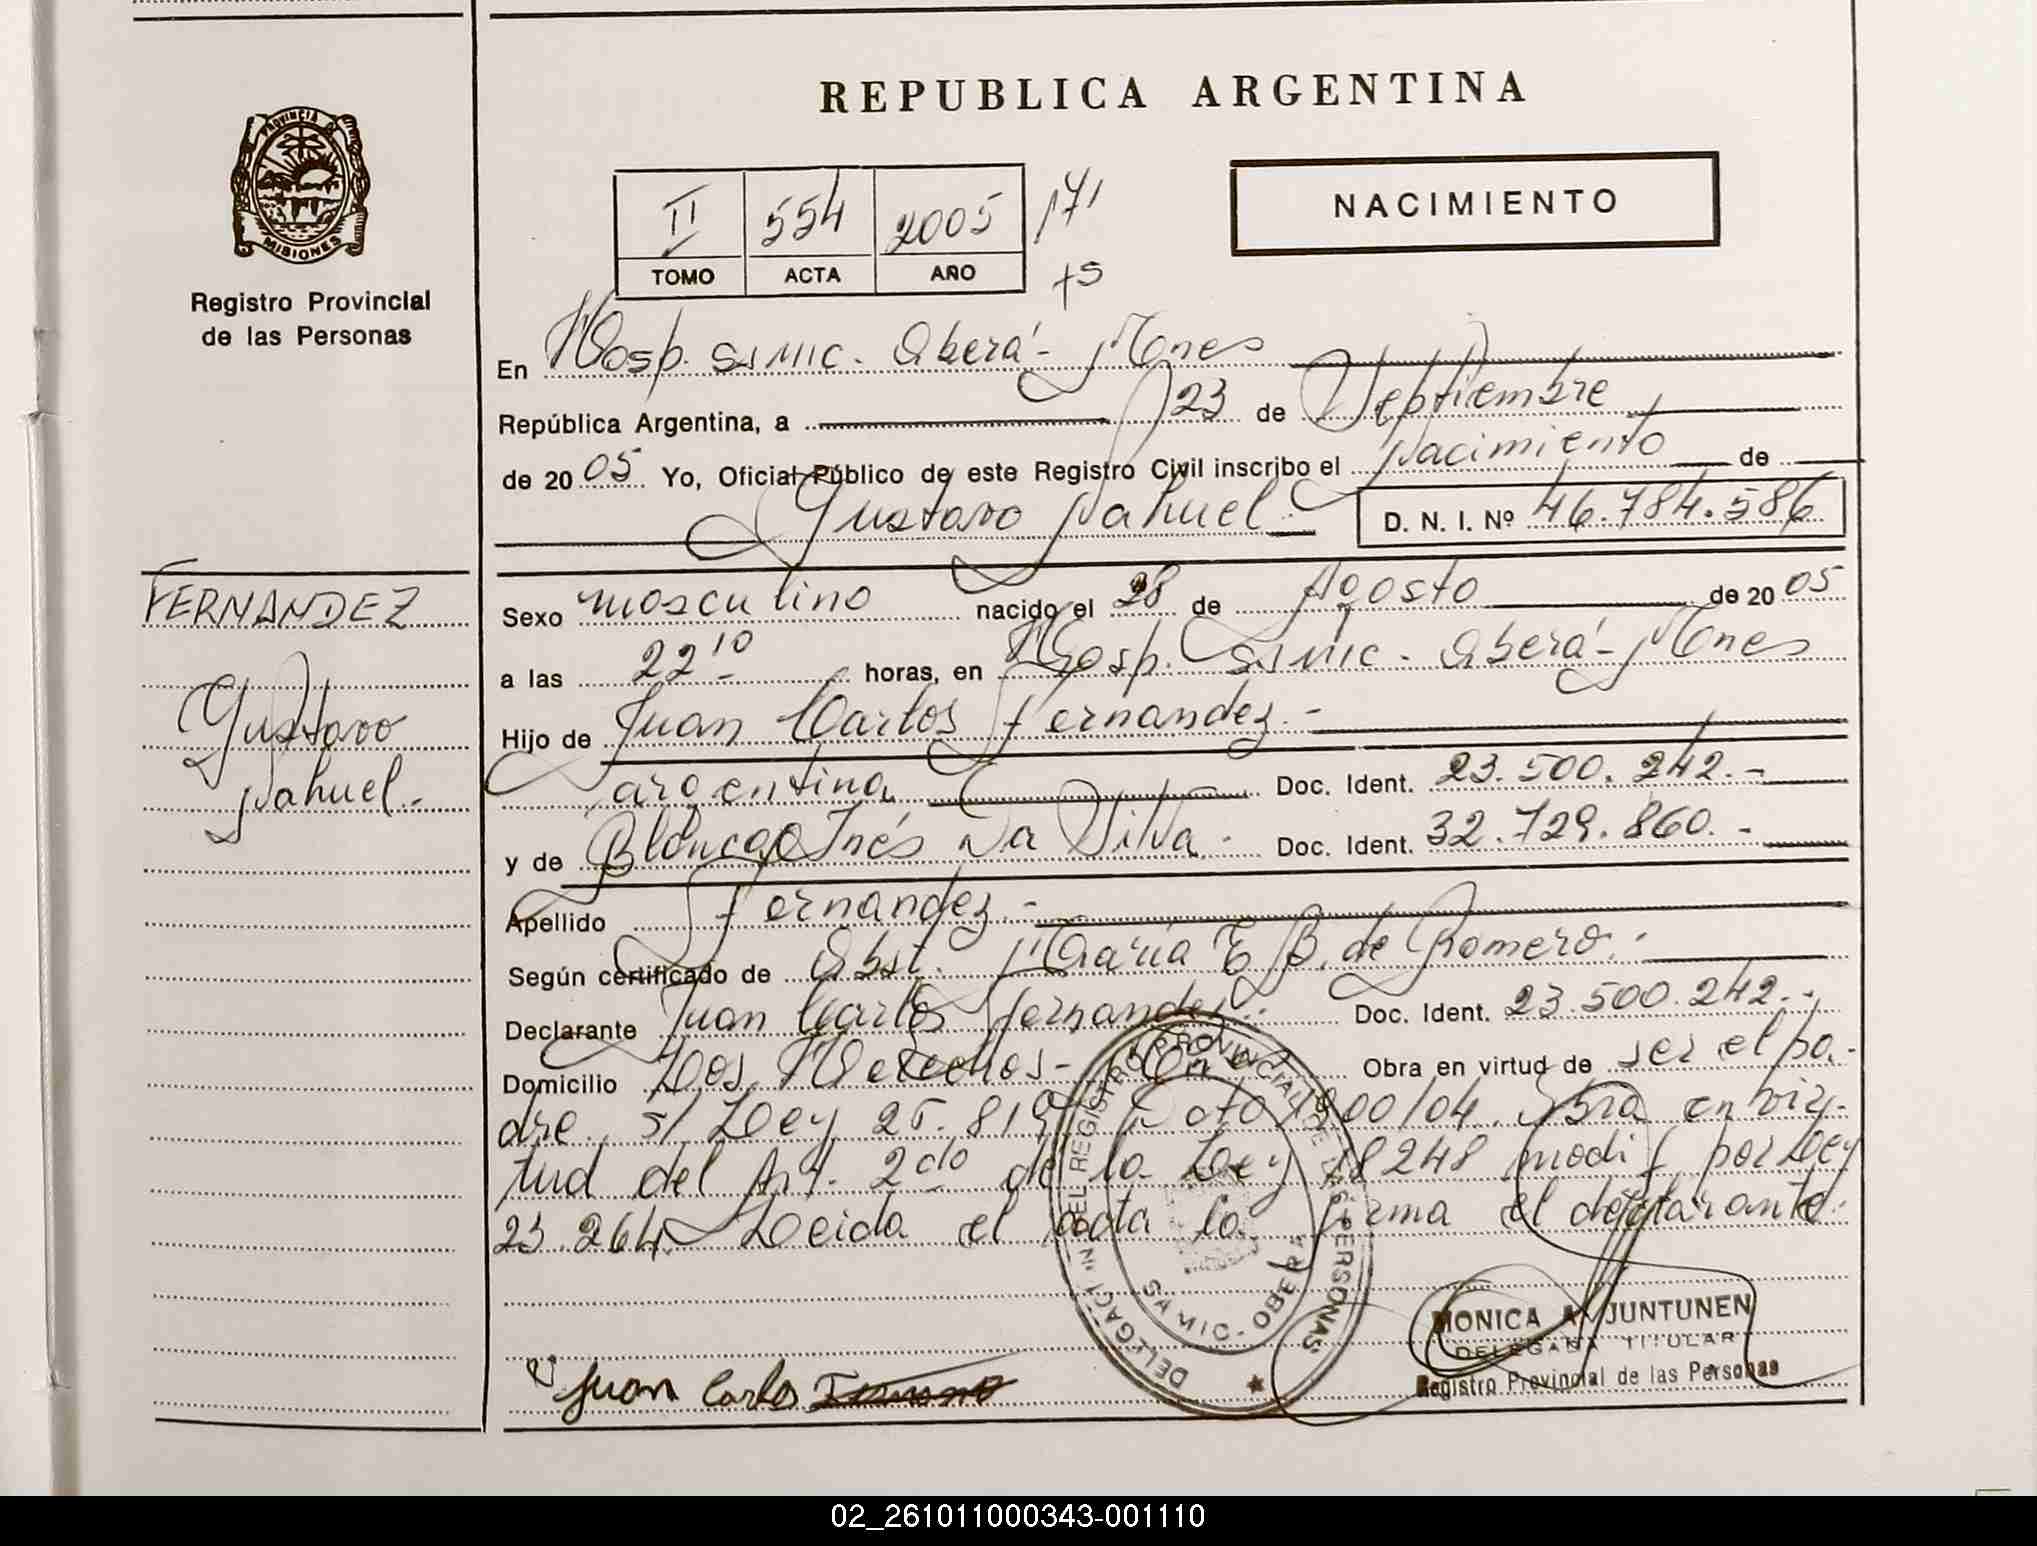 REPUBLICA ARGENTINA
PROVINCIA DE
MISIONES
Registro Provincial
de las Personas
II 554 2005 171
TOMO ACTA AÑO +5
NACIMIENTO
En Hosp. SAMIC. Oberá - Mnes
República Argentina, a 23 de Septiembre
de 2005 Yo, Oficial Público de este Registro Civil inscribo el Nacimiento de
Gustavo Nahuel D. N. I. Nº 46.784.586
FERNANDEZ
Gustavo
Nahuel.-
Sexo masculino nacido el 28 de Agosto de 2005
a las 22 10 horas, en Hosp. SAMIC - Oberá - Mnes
Hijo de Juan Carlos Fernandez.-
argentina Doc. Ident. 23.500.242.-
y de Blanca Inés Da Silva. Doc. Ident. 32.729.860.-
Apellido Fernandez.-
Según certificado de Obst. María E B. de Romero.-
Declarante Juan Carlos Fernandez.- Doc. Ident. 23.500.242.-
Domicilio Los Helechos - Mnes Obra en virtud de ser el pa-
dre s/ Ley 25.819 Dto 1900/04. Obra en vir-
tud del Art. 2do de la Ley 18248 modif por Ley
23.264. Leida el acta la firma el declarante.
DELEGACION DEL REGISTRO PROVINCIAL DE LAS PERSONAS
SAMIC - OBERA
MONICA A. JUNTUNEN
DELEGADA TITULAR
Registro Provincial de las Personas
Juan Carlos
02_261011000343-001110